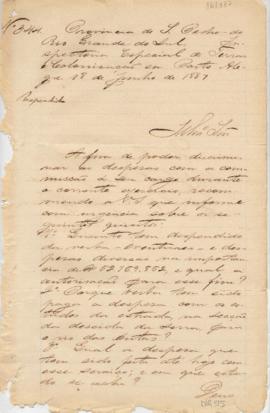 Provincia de S. Pedro do
Rio Grande do Sul,
Especial de Terras
e Colonisação em Porto Ale-
gre, 18 de Junho de 1887
Respondido
Illmo Snr
A fim de poder discrimi-
nar as despesas com a com-
missão a seu cargo durante
o corrente exercicio, recom-
mendo a V. S. que informe
com urgencia sobre os se-
guintes quesitos:
1º Quanto tem despendido
da verba e des-
pesas diversas na importan-
cia de 62.169.552, e qual a
autorisação para esse fim?
2º Porque verba tem sido
paga a despesa com os es-
tudos da estrada, na secção
da descida da Serra para
o rio das Antas?
3º Qual a despesa que
tem sido feita até hoje com
esse serviço; e em que esta-
do se acha?
Deus